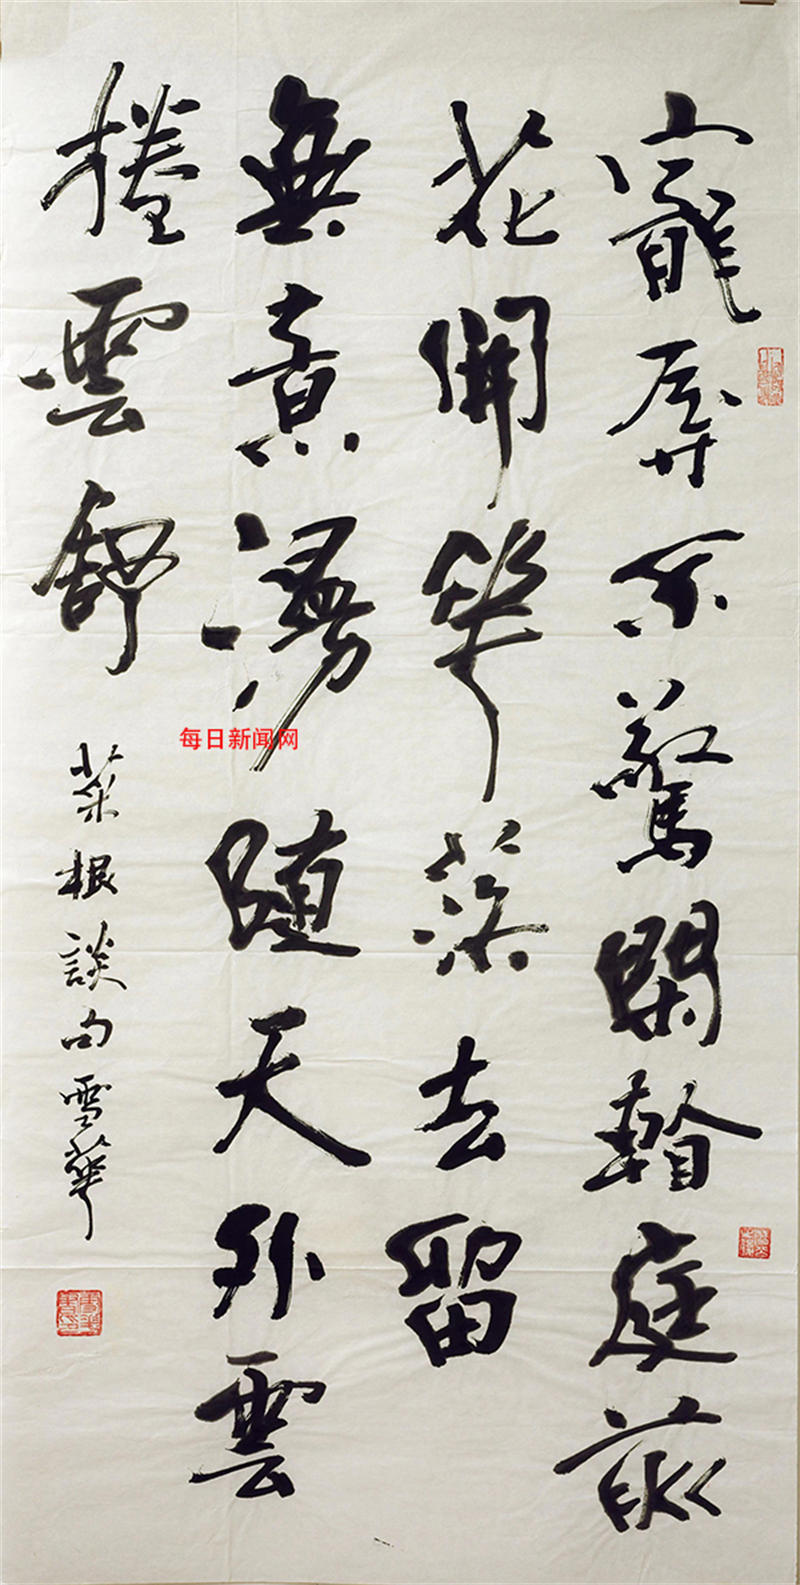 寵辱不驚閑看庭前
花開華落去留
無意漫隨天外雲
捲雲舒
菜根談句雪華
每日新闻网